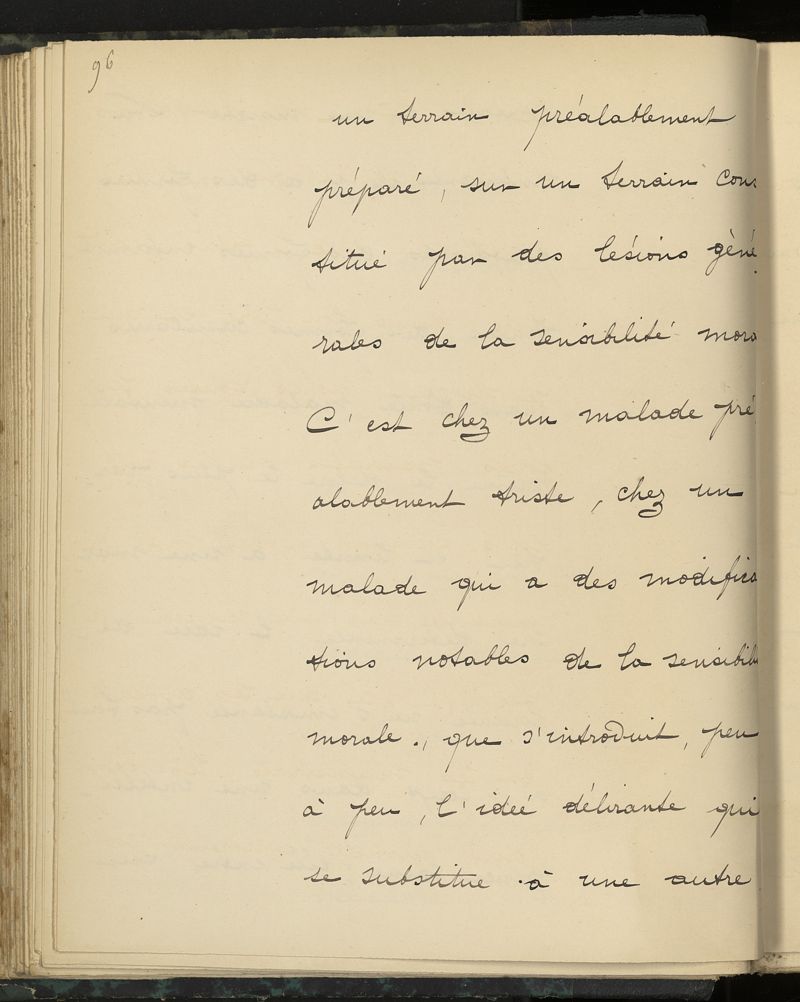 96
un terrain préalablement
préparé, sur un terrain cons
titué par des lésions géné
rales de la sensibilité mora
C'est chez un malade pré
alablement triste, chez un
malade qui a des modifica
tions notables de la sensibili
morale, que s'introduit, peu
à peu, l'idée délirante qui
se substitue à une autre